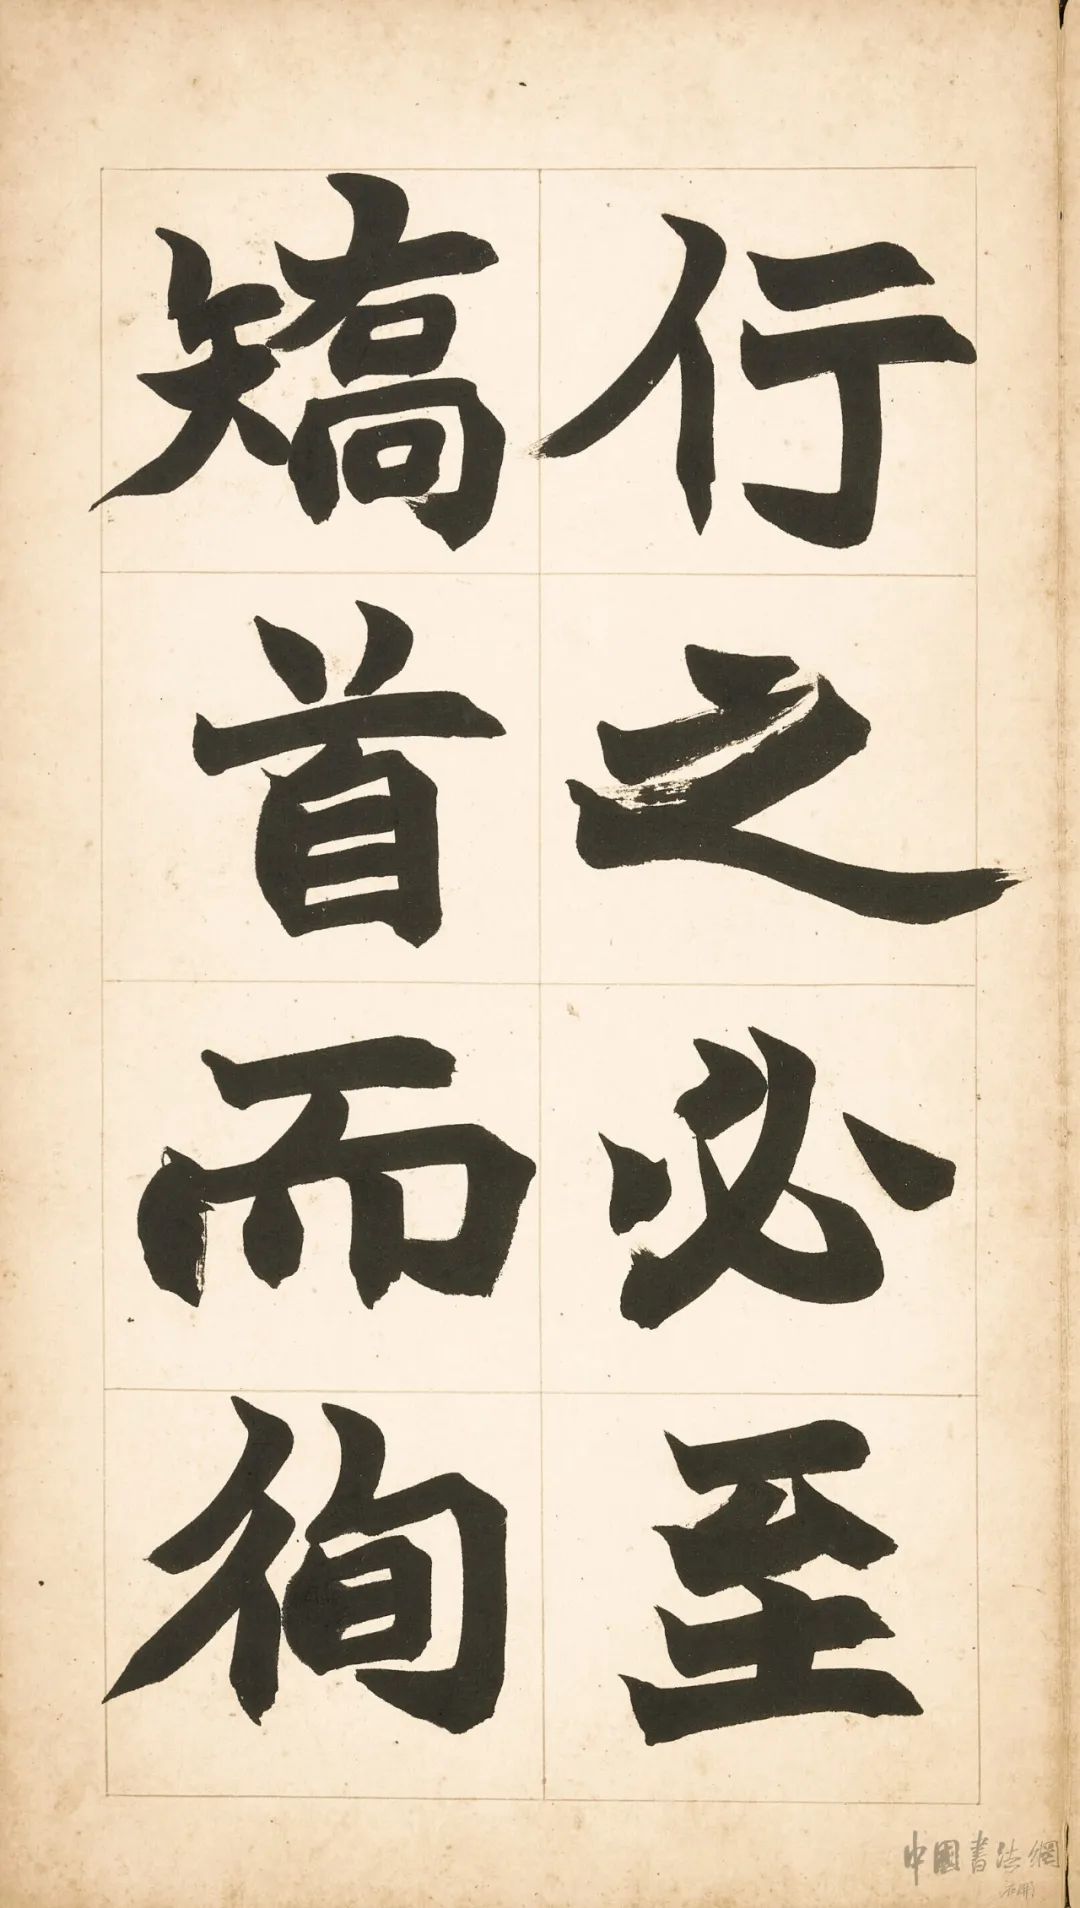 行之必至
矯首而徇
中國書法網